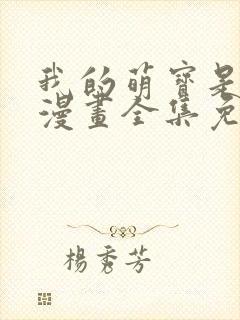 我的萌寶是
漫畫全集免
楊秀芳